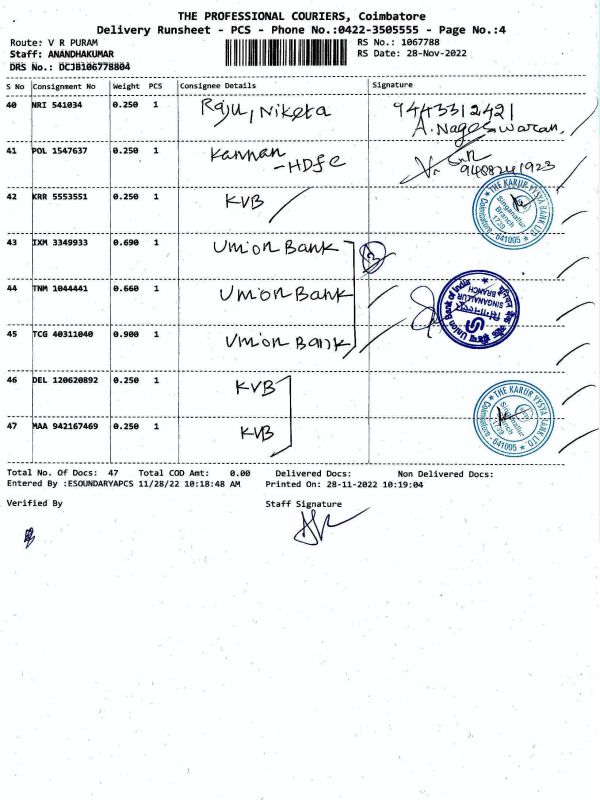 THE PROFESSIONAL COURIERS, Coimbatore
Delivery Runsheet - PCS - Phone No.:0422-3505555 - Page No.:4
Route: V R PURAM RS No.: 1067788
Staff: ANANDHAKUMAR RS Date: 28-Nov-2022
DRS No.: DCJB106778804
S No Consignment No Weight PCS Consignee Details Signature
40 NRI 541034 0.250 1 Raju, Niketa 9443312421
A. Nageswaran,
41 POL 1547637 0.250 1 Kannan
-HDFC 9488241923
42 KRR 5553551 0.250 1 KVB
THE KARUR VYSYA BANK LTD Singanallur Branch 1739 Coimbatore - 641005
43 IXM 3349933 0.690 1 Union Bank
44 TNM 1044441 0.660 1 Union Bank
Union Bank of India SINGANALLUR BRANCH
45 TCG 40311040 0.900 1 Union Bank
46 DEL 120620892 0.250 1 KVB
THE KARUR VYSYA BANK LTD Singanallur Branch 1739 Coimbatore - 641005
47 MAA 942167469 0.250 1 KVB
Total No. Of Docs: 47 Total COD Amt: 0.00 Delivered Docs: Non Delivered Docs:
Entered By :ESOUNDARYAPCS 11/28/22 10:18:48 AM Printed On: 28-11-2022 10:19:04
Verified By Staff Signature